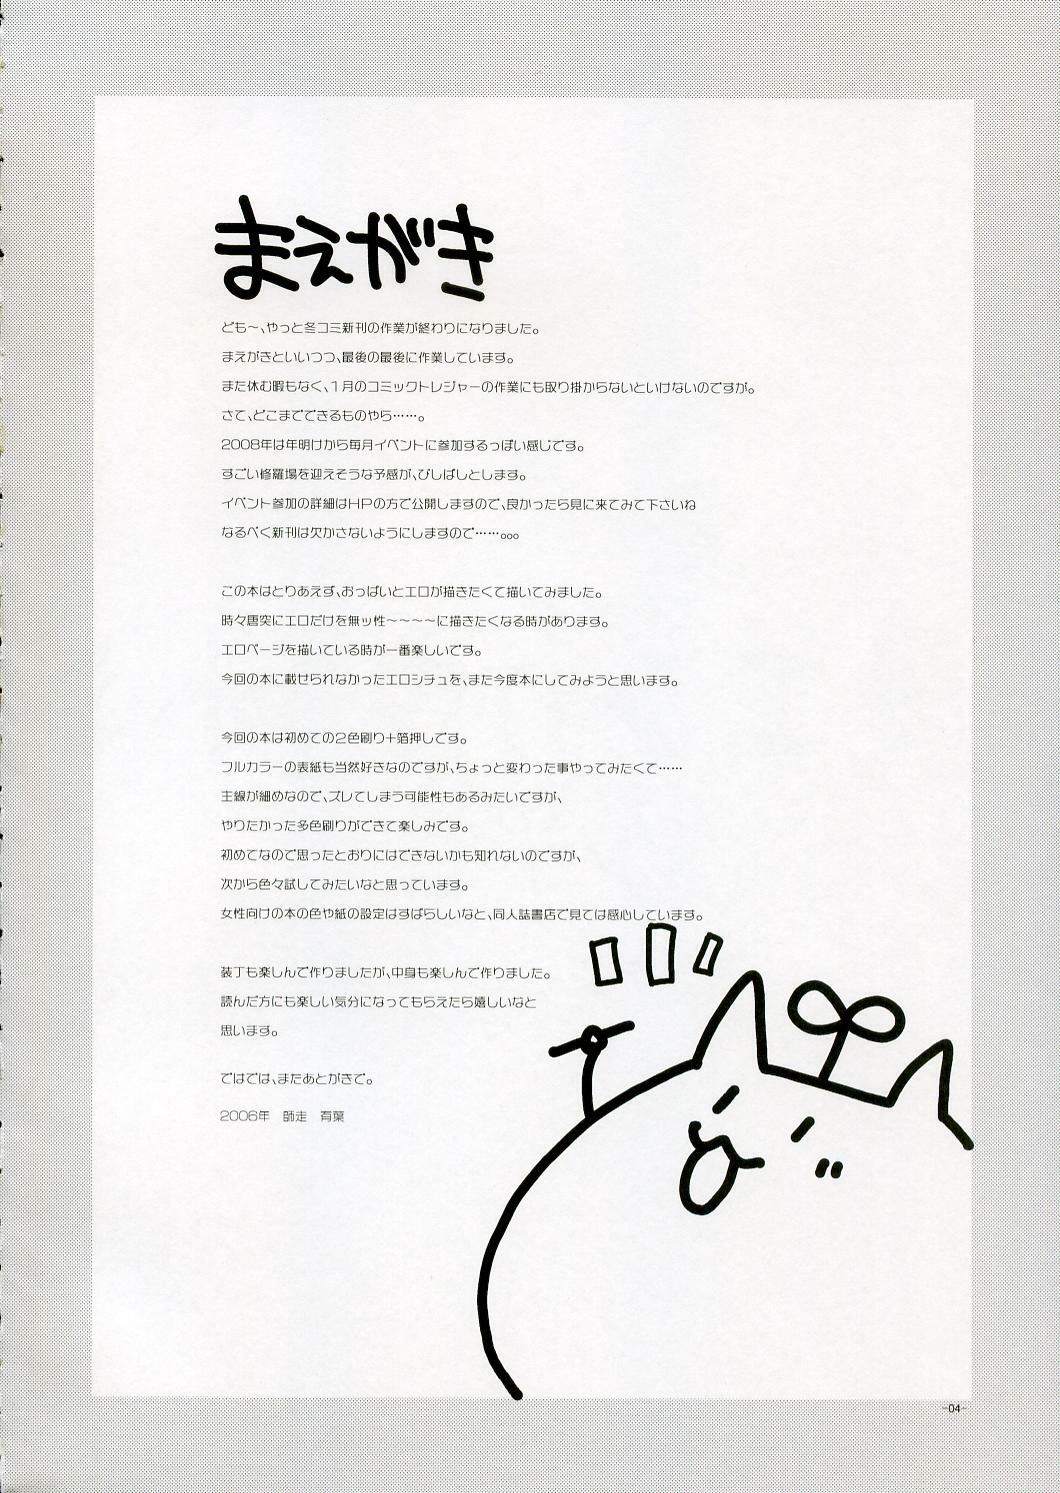 まえがき
ども～、やっと冬コミ新刊の作業が終わりになりました。
まえがきといいつつ、最後の最後に作業しています。
また休む暇もなく、1月のコミックトレジャーの作業にも取り掛からないといけないのですが。
さて、どこまでできるものやら……。
2008年は年明けから毎月イベントに参加するっぽい感じです。
すごい修羅場を迎えそうな予感が、びしばしとします。
イベント参加の詳細はHPの方で公開しますので、良かったら見に来てみて下さいね
なるべく新刊は欠かさないようにしますので……。。。
この本はとりあえず、おっぱいとエロが描きたくて描いてみました。
時々唐突にエロだけを無ッ性～～～～に描きたくなる時があります。
エロページを描いている時が一番楽しいです。
今回の本に載せられなかったエロシチュを、また今度本にしてみようと思います。
今回の本は初めての2色刷り＋箔押しです。
フルカラーの表紙も当然好きなのですが、ちょっと変わった事やってみたくて……
主線が細めなので、ズレてしまう可能性もあるみたいですが、
やりたかった多色刷りができて楽しみです。
初めてなので思ったとおりにはできないかも知れないのですが、
次から色々試してみたいなと思っています。
女性向けの本の色や紙の設定はすばらしいなと、同人誌書店で見ては感心しています。
装丁も楽しんで作りましたが、中身も楽しんで作りました。
読んだ方にも楽しい気分になってもらえたら嬉しいなと
思います。
ではでは、またあとがきで。
2006年　師走　有葉
-04-